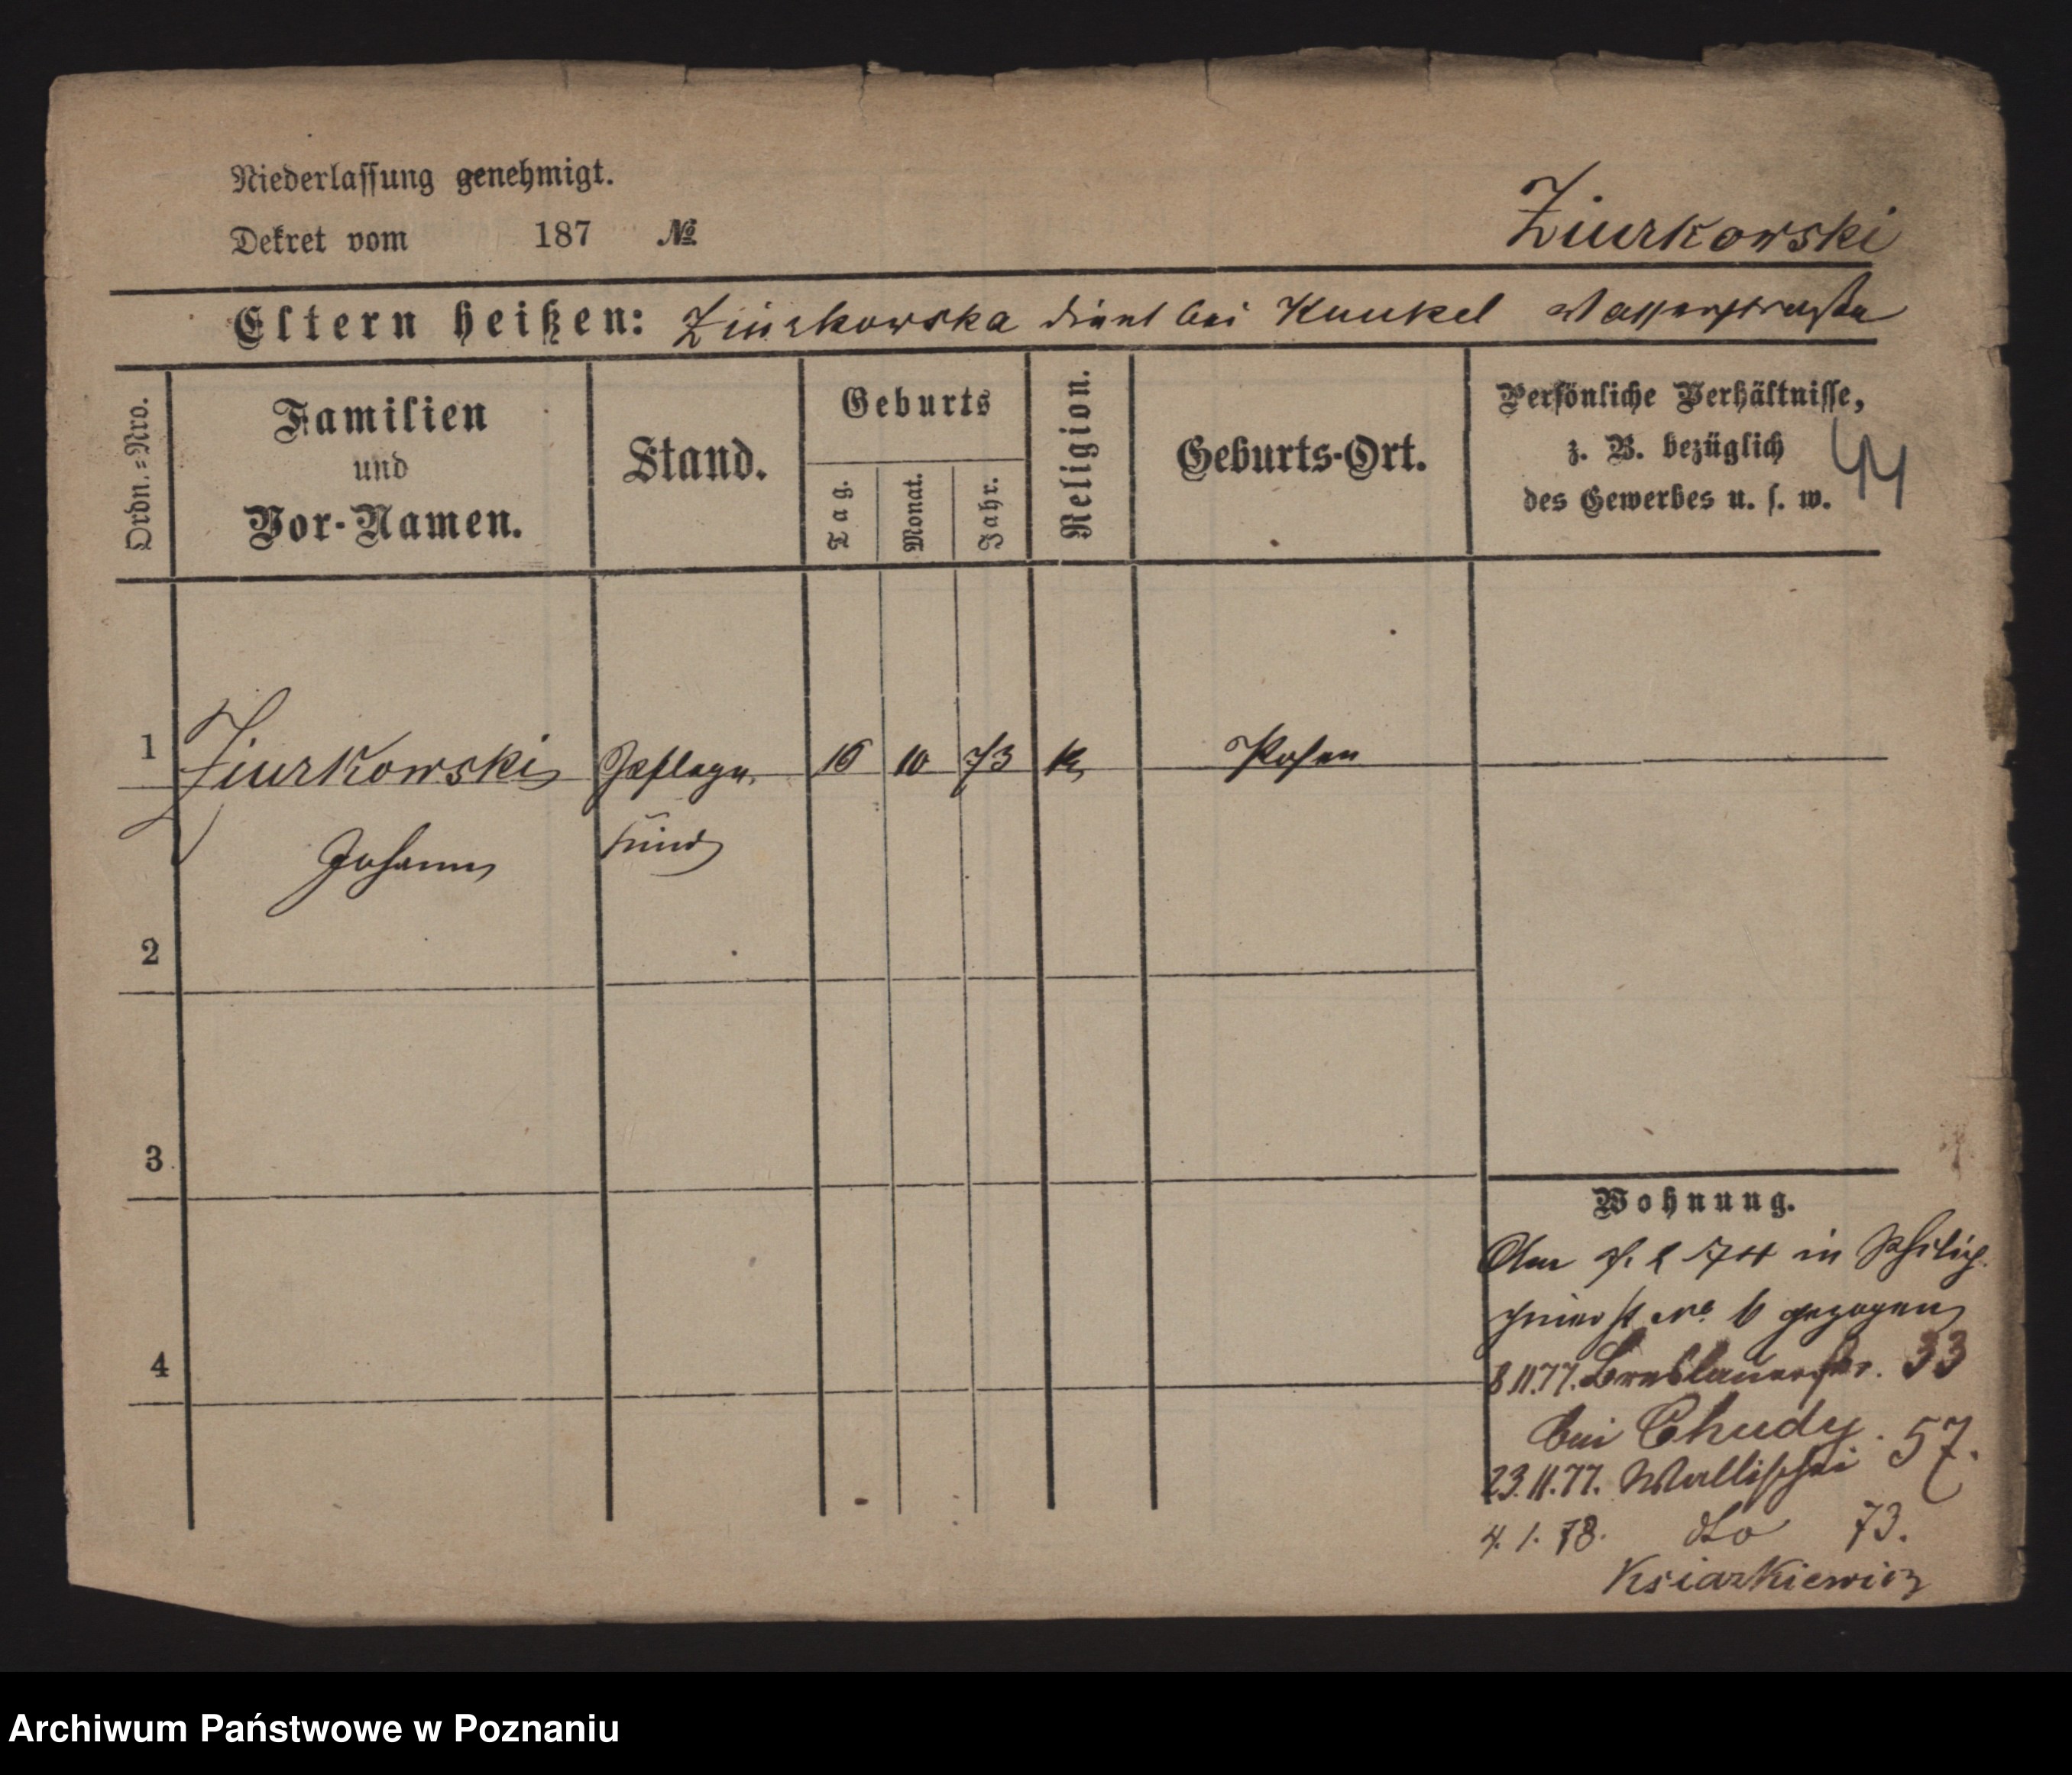 Niederlassung genehmigt.
Dekret vom 187 №
Ziurkowski
Eltern heißen: Ziurkowska dient bei Kunkel Wasserstraße
Ordn.=Nro.
Familien
und
Vor-Namen.
Stand.
Geburts
Tag.
Monat.
Jahr.
Religion.
Geburts-Ort.
Persönliche Verhältnisse,
z. B. bezüglich
des Gewerbes u. s. w.
44
1 Ziurkowski Pflege 16 10 73 k Posen
Johann kind
2
3
4
Wohnung.
Am 7. 2 74 in
No 6 gezogen
8.11.77. Breslauerstr. 33
bei Chudy.
23.11.77. Wallischei 57.
4. 1. 78. dto 73.
Ksiazkiewicz
Archiwum Państwowe w Poznaniu